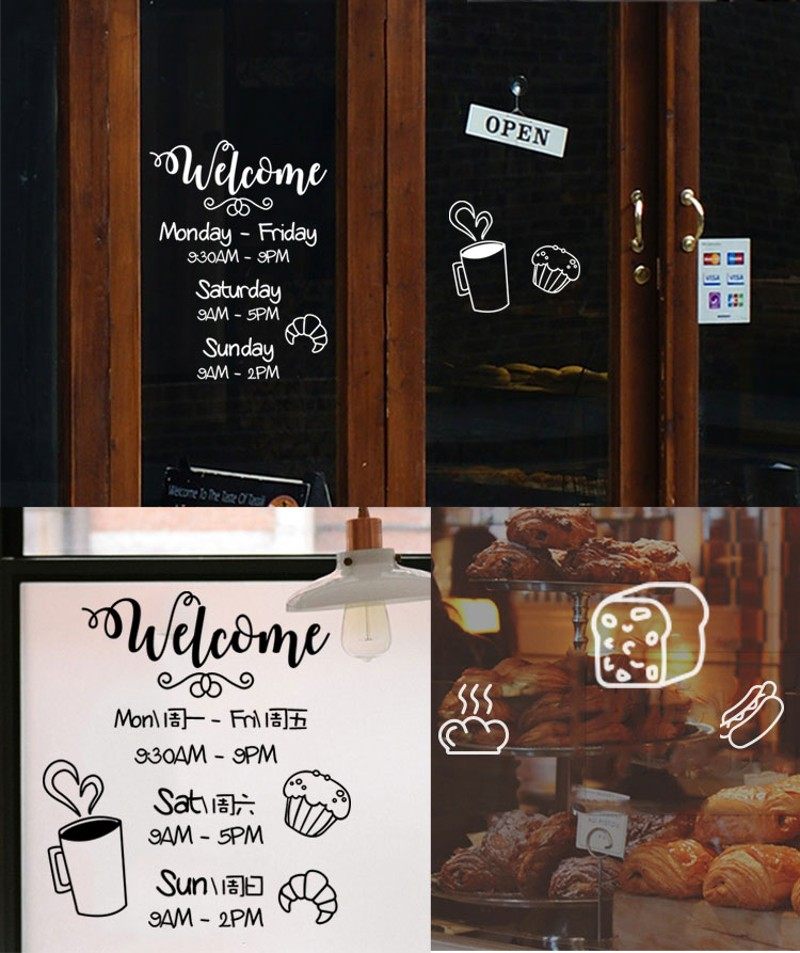 Welcome
Monday - Friday
9:30AM - 9PM
Saturday
9AM - 5PM
Sunday
9AM - 2PM
OPEN
VISA
VISA
Welcome To The Taste Of
Welcome
Mon\周一 - Fri\周五
9:30AM - 9PM
Sat\周六
9AM - 5PM
Sun\周日
9AM - 2PM